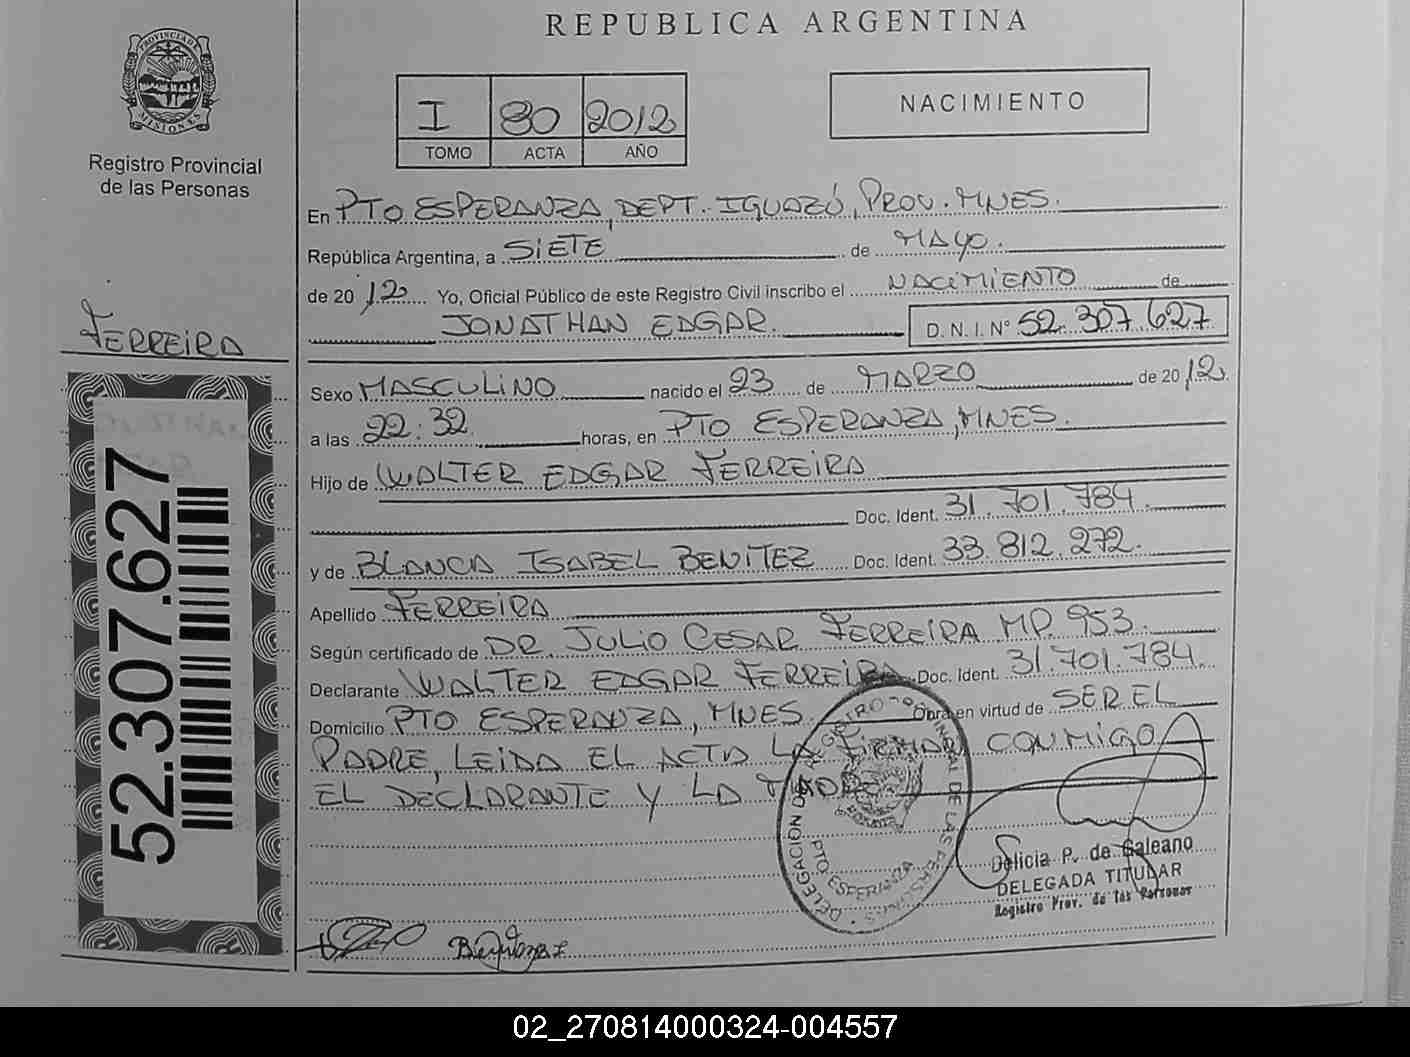 REPUBLICA ARGENTINA
PROVINCIA DE
MISIONES
Registro Provincial
de las Personas
I 80 2012
TOMO ACTA AÑO
NACIMIENTO
En PTO ESPERANZA, DEPT. IGUAZÚ, PROV. MNES.
República Argentina, a SIETE de MAYO.
de 2012 Yo, Oficial Público de este Registro Civil inscribo el NACIMIENTO de
JONATHAN EDGAR. D. N. I. N° 52.307.627
FERREIRA
Sexo MASCULINO nacido el 23 de MARZO de 2012.
a las 22:32 horas, en PTO ESPERANZA, MNES.
Hijo de WALTER EDGAR FERREIRA
Doc. Ident. 31.701.784.
y de BLANCA ISABEL BENITEZ Doc. Ident. 33.812.272.
Apellido FERREIRA
Según certificado de DR. JULIO CESAR FERREIRA MP. 953.
Declarante WALTER EDGAR FERREIRA Doc. Ident. 31.701.784.
Domicilio PTO ESPERANZA, MNES. Obra en virtud de SER EL
PADRE, LEIDA EL ACTA LA FIRMAN CONMIGO
EL DECLARANTE Y LA MADRE
52.307.627
REGISTRO PROVINCIAL DE LAS PERSONAS
DELEGACION
PTO ESPERANZA
Delicia P. de Galeano
DELEGADA TITULAR
Registro Prov. de las Personas
02_270814000324-004557